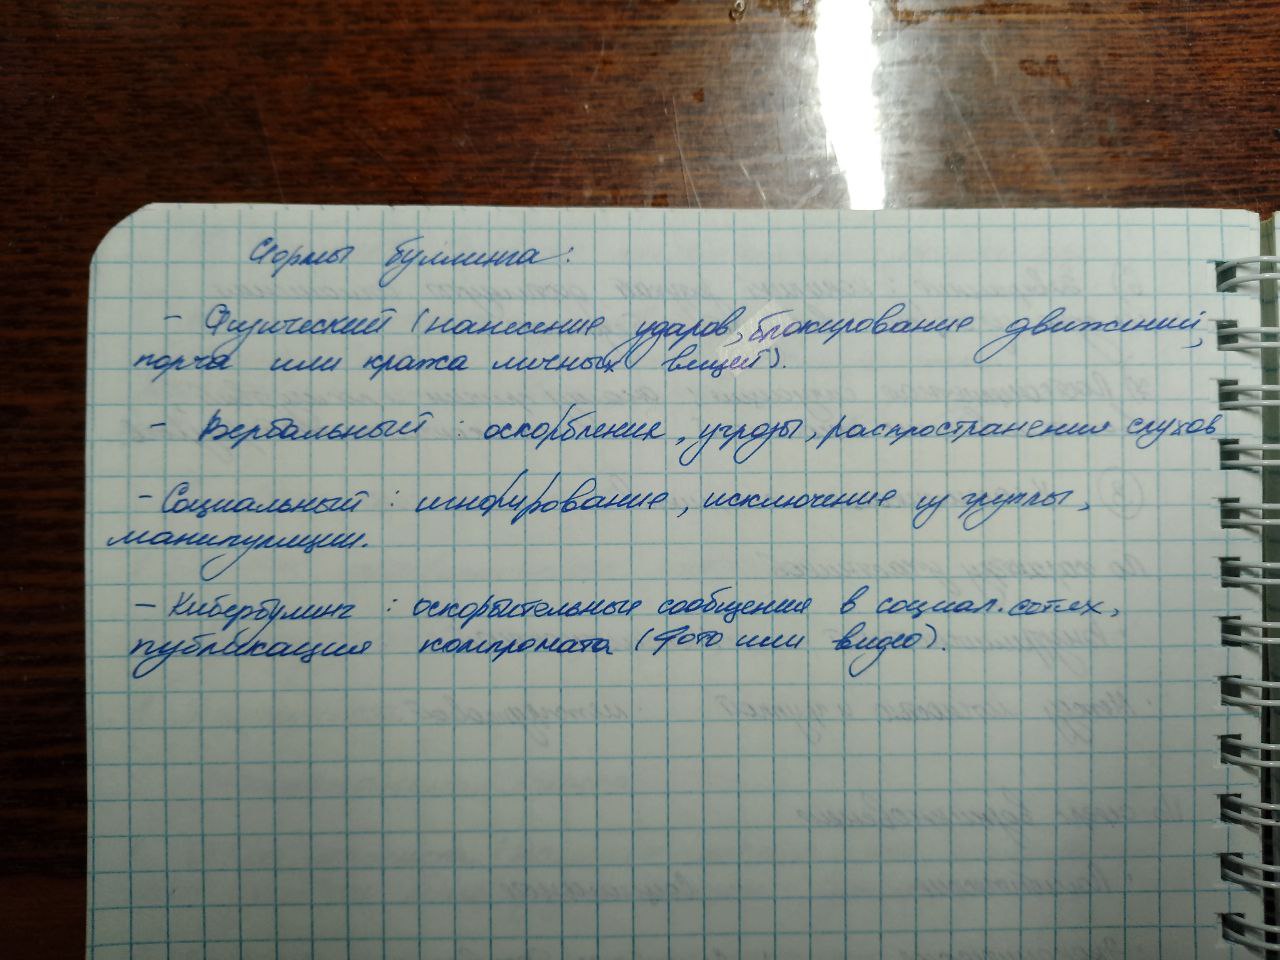 Формы буллинга:
- Физический (нанесение ударов, блокирование движений,
порча или кража личных вещей).
- Вербальный : оскорбления, угрозы, распространения слухов
- Социальный : игнорирование, исключение из группы,
манипуляции.
- Кибербулинг : оскорбительные сообщения в социал. сетях,
публикация компромата (фото или видео).